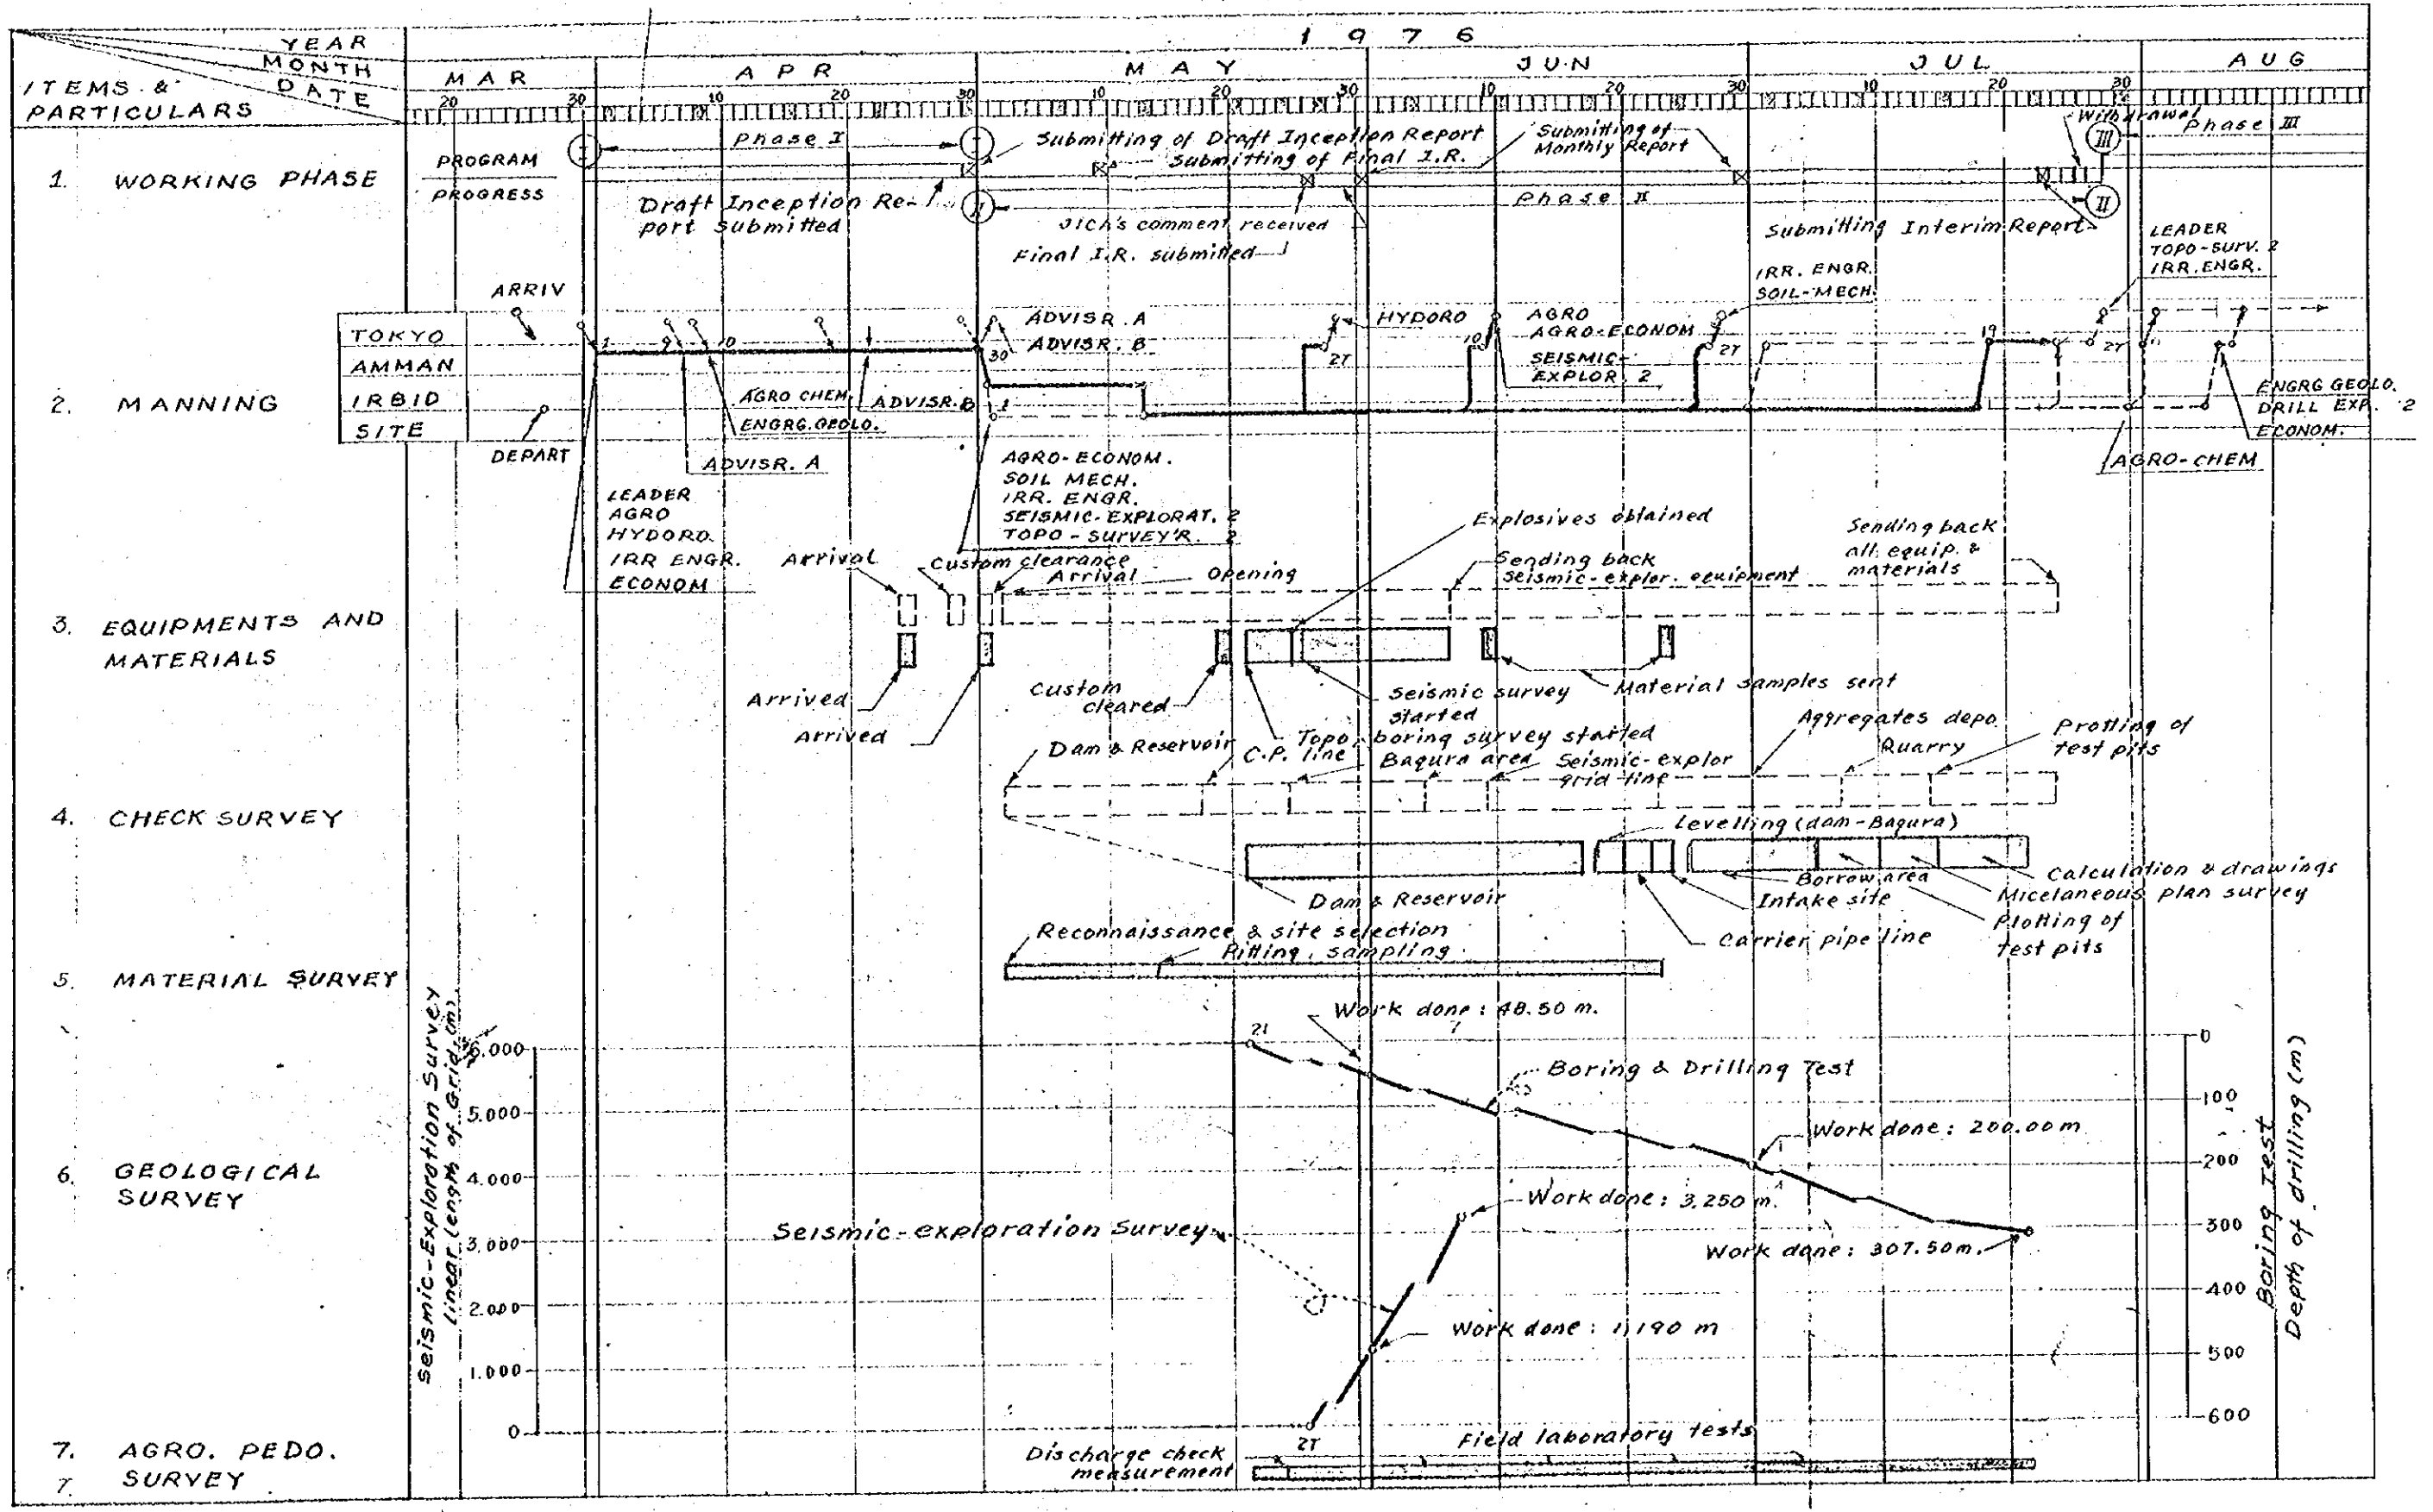 1976
YEAR
MONTH
DATE
ITEMS &
PARTICULARS
MAR
APR
MAY
JUN
JUL
AUG
20 30 10 20 30 10 20 30 10 20 30 10 20 30
1. WORKING PHASE
PROGRAM
PROGRESS
I
Phase I
I
Submitting of Draft Inception Report
Submitting of Final I.R.
Submitting of
Monthly Report
Withdrawal
III
Phase III
Draft Inception Re-
port Submitted
II
JICA's comment received
Final I.R. submitted
Phase II
II
Submitting Interim Report
2. MANNING
ARRIV
TOKYO
AMMAN
IRBID
SITE
DEPART
1
9
10
AGRO CHEM
ENGRG. GEOLO.
ADVISR. B
ADVISR. A
LEADER
AGRO
HYDORO.
IRR ENGR.
ECONOM
ADVISR. A
ADVISR. B
30
1
AGRO-ECONOM.
SOIL MECH.
IRR. ENGR.
SEISMIC-EXPLORAT. 2
TOPO-SURVEY'R. 2
HYDORO
27
10
AGRO
AGRO-ECONOM
SEISMIC-
EXPLOR. 2
IRR. ENGR.
SOIL-MECH.
27
19
LEADER
TOPO-SURV. 2
IRR. ENGR.
27
ENGRG GEOLO.
DRILL EXP. 2
ECONOM.
AGRO-CHEM
3. EQUIPMENTS AND
MATERIALS
Arrival
Custom clearance
Arrival
Opening
Explosives obtained
Sending back
seismic-explor. equipment
Sending back
all equip. &
materials
Arrived
Arrived
Custom
cleared
Topo, boring survey started
Seismic survey
started
Material samples sent
4. CHECK SURVEY
Dam & Reservoir
C.P. line
Baqura area
Seismic-explor
grid line
Aggregates depo.
Quarry
Protting of
test pits
Levelling (dam-Baqura)
Dam & Reservoir
Carrier pipe line
Intake site
Borrow area
Calculation & drawings
Micelaneous plan survey
Plotting of
test pits
5. MATERIAL SURVEY
Reconnaissance & site selection
Pitting, sampling
6. GEOLOGICAL
SURVEY
Seismic-Exploration Survey
linear length of Grid (m)
6.000
5.000
4.000
3.000
2.000
1.000
0
21
Work done: 48.50 m.
Boring & Drilling Test
Work done: 200.00 m
Work done: 307.50 m.
Seismic-exploration Survey
Work done: 3.250 m.
Work done: 1,190 m
27
0
100
200
300
400
500
600
Boring Test
Depth of drilling (m)
7. AGRO. PEDO.
SURVEY
Discharge check
measurement
Field laboratory tests